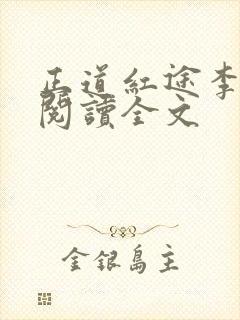 正道红途李
阅读全文
金银岛主